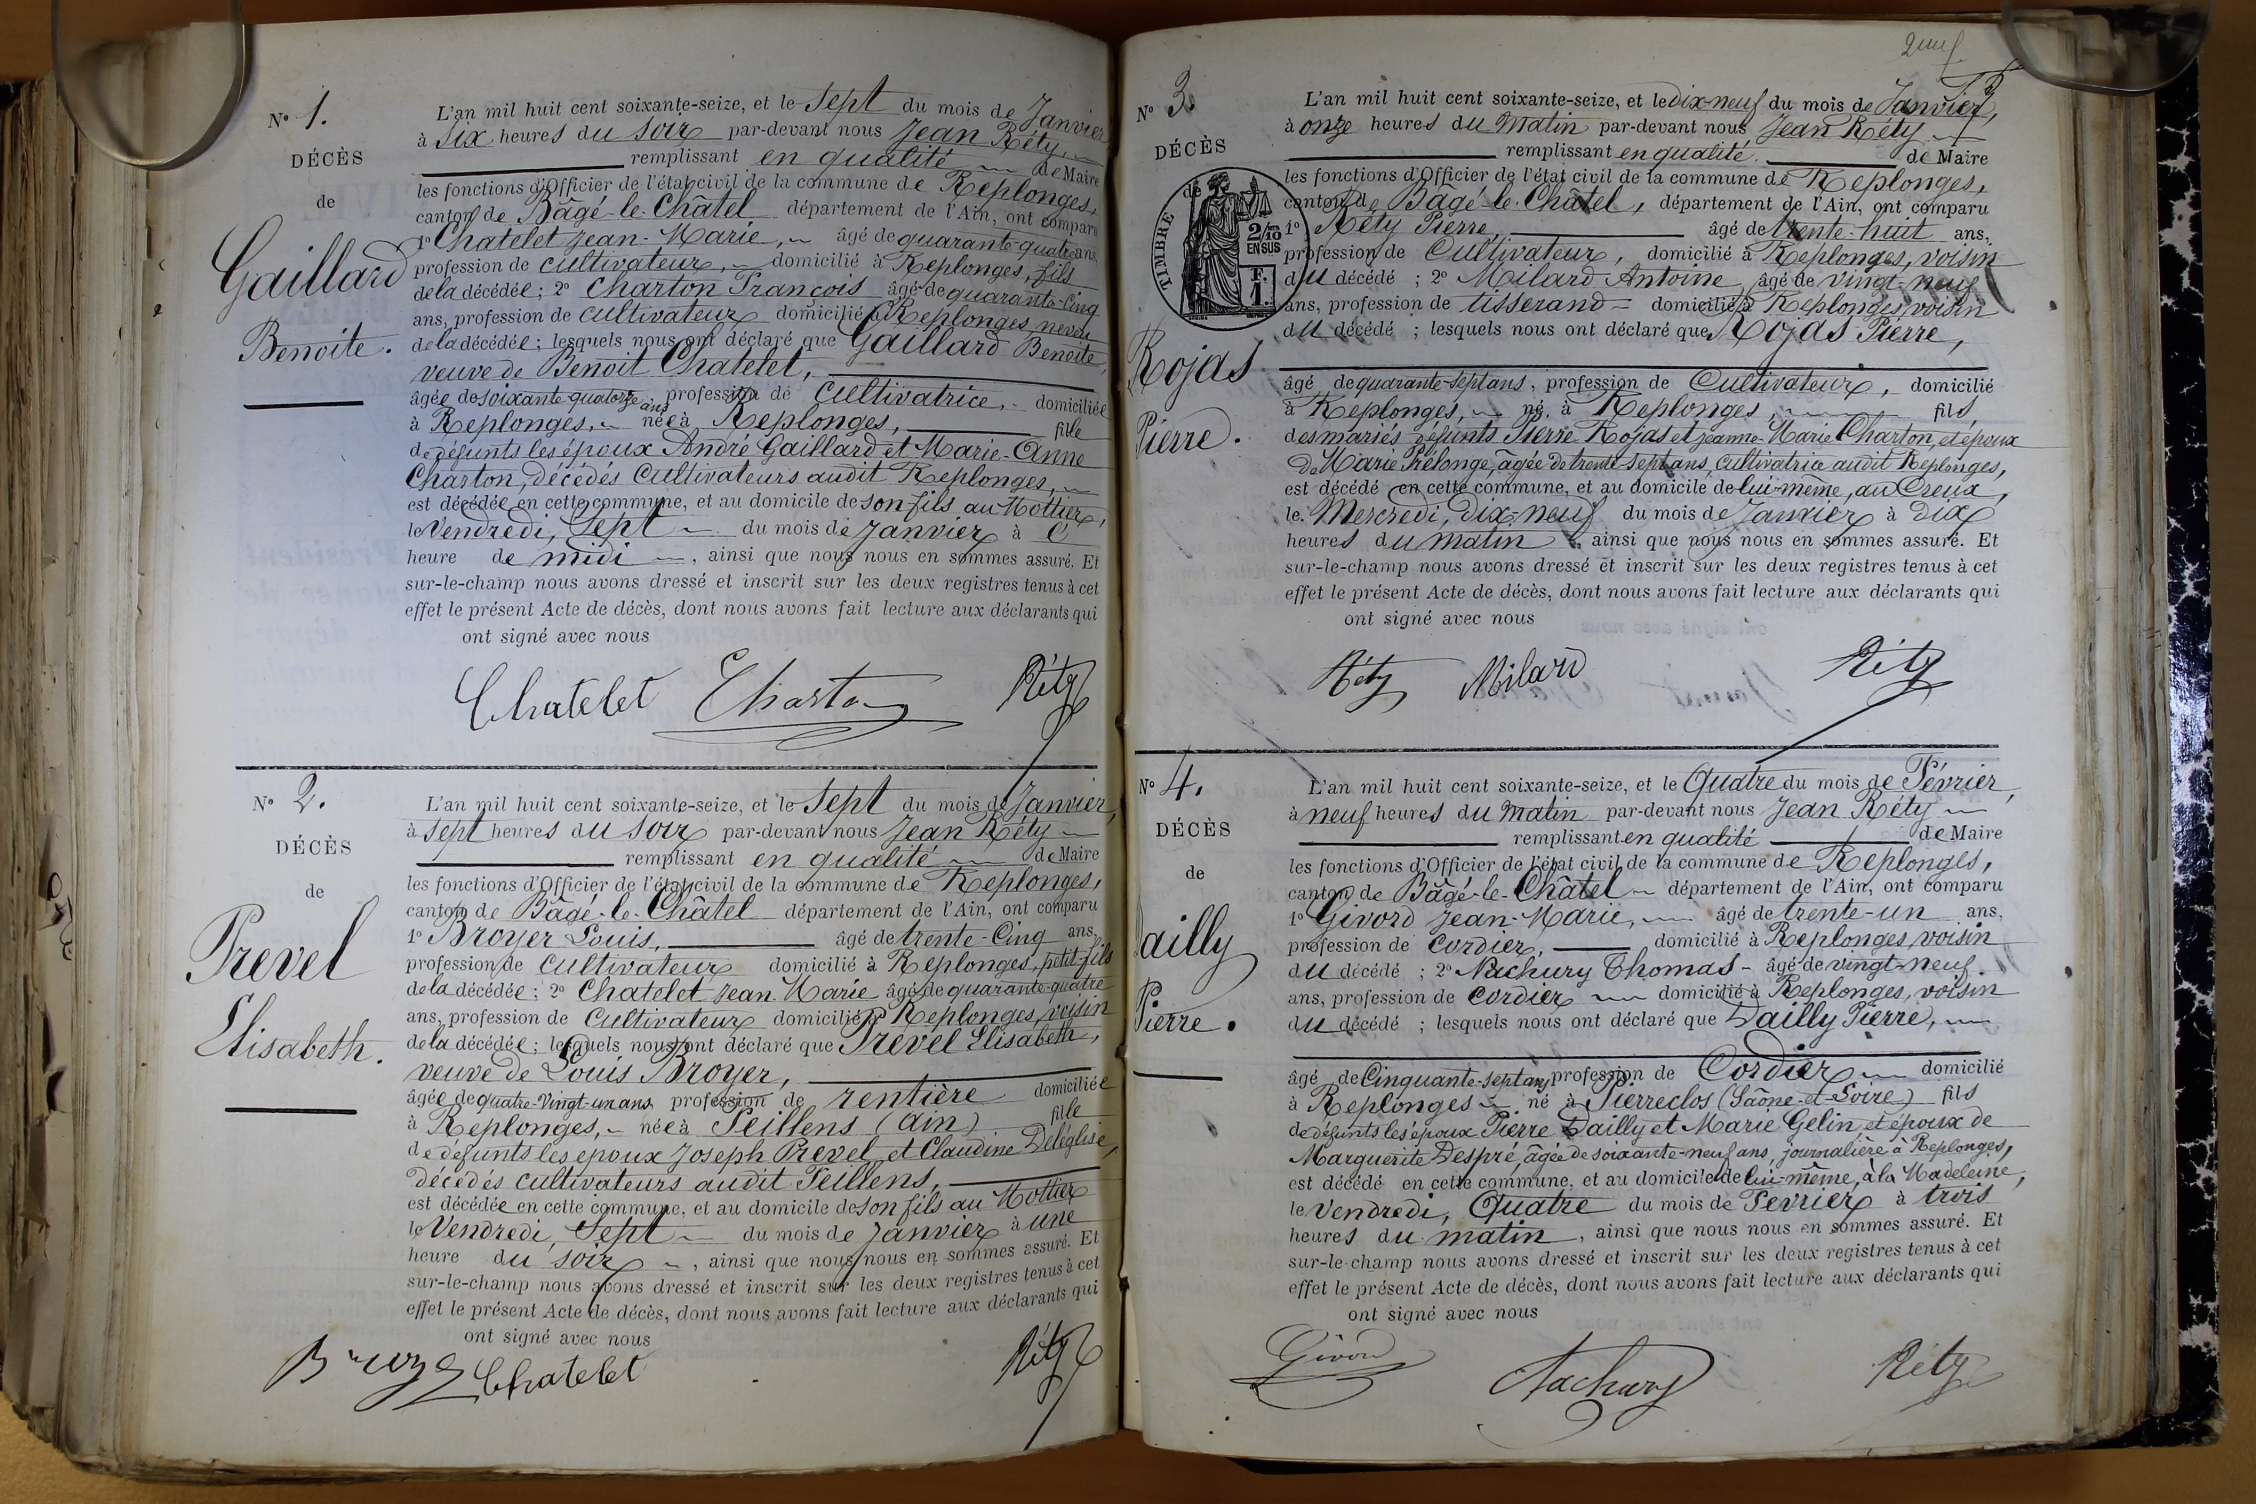 N° 1.
DÉCÈS
de
Gaillard
Benoite.
L'an mil huit cent soixante-seize, et le Sept du mois de Janvier
à Six heures du Soir par-devant nous Jean Réty,
remplissant en qualité de Maire
les fonctions d'Officier de l'état civil de la commune de Replonges,
canton de Bâgé-le-Châtel département de l'Ain, ont comparu
1° Chatelet Jean-Marie, âgé de quarante-quatre ans,
profession de cultivateur, domicilié à Replonges, fils
de la décédée; 2° Charton François âgé de quarante-Cinq
ans, profession de cultivateur domicilié à Replonges, neveu
de la décédée; lesquels nous ont déclaré que Gaillard Benoite,
veuve de Benoit Chatelet,
âgée de soixante-quatorze ans profession de Cultivatrice, domiciliée
à Replonges, née à Replonges, fille
de défunts les époux André Gaillard et Marie-Anne
Charton, décédés Cultivateurs audit Replonges,
est décédée en cette commune, et au domicile de son fils au Mottier,
le Vendredi, Sept du mois de Janvier à l'
heure de midi, ainsi que nous nous en sommes assuré. Et
sur-le-champ nous avons dressé et inscrit sur les deux registres tenus à cet
effet le présent Acte de décès, dont nous avons fait lecture aux déclarants qui
ont signé avec nous
Chatelet Charton Réty
N° 2.
DÉCÈS
de
Prevel
Elisabeth.
L'an mil huit cent soixante-seize, et le Sept du mois de Janvier,
à Sept heures du Soir par-devant nous Jean Réty
remplissant en qualité de Maire
les fonctions d'Officier de l'état civil de la commune de Replonges,
canton de Bâgé-le-Châtel département de l'Ain, ont comparu
1° Broyer Louis, âgé de trente-Cinq ans,
profession de cultivateur domicilié à Replonges, petit-fils
de la décédée; 2° Chatelet Jean-Marie âgé de quarante-quatre
ans, profession de Cultivateur domicilié à Replonges, voisin
de la décédée; lesquels nous ont déclaré que Prevel Elisabeth,
veuve de Louis Broyer,
âgée de quatre-Vingt-un ans profession de rentière domiciliée
à Replonges, née à Feillens (Ain) fille
de défunts les époux Joseph Prevel et Claudine Deléglise,
décédés cultivateurs audit Feillens,
est décédée en cette commune, et au domicile de son fils au Mottier
le Vendredi, Sept du mois de Janvier à une
heure du soir, ainsi que nous nous en sommes assuré. Et
sur-le-champ nous avons dressé et inscrit sur les deux registres tenus à cet
effet le présent Acte de décès, dont nous avons fait lecture aux déclarants qui
ont signé avec nous
Broyer Chatelet Réty
N° 3.
DÉCÈS
de
TIMBRE
2/10
EN SUS
F.
1.
Rojas
Pierre.
L'an mil huit cent soixante-seize, et le dix-neuf du mois de Janvier,
à onze heures du matin par-devant nous Jean Réty
remplissant en qualité de Maire
les fonctions d'Officier de l'état civil de la commune de Replonges,
canton de Bâgé-le-Châtel, département de l'Ain, ont comparu
1° Réty Pierre, âgé de trente-huit ans,
profession de Cultivateur, domicilié à Replonges, voisin
du décédé; 2° Milard Antoine, âgé de vingt-neuf
ans, profession de tisserand = domicilié à Replonges, voisin
du décédé; lesquels nous ont déclaré que Rojas Pierre,
âgé de quarante-sept ans, profession de Cultivateur, domicilié
à Replonges, né à Replonges, fils
des mariés défunts Pierre Rojas et Jeanne-Marie Charton, et époux
de Marie Prélonge, âgée de trente-sept ans, cultivatrice audit Replonges,
est décédé en cette commune, et au domicile de lui-même, au Creux,
le Mercredi, Dix-neuf du mois de Janvier à dix
heures du matin ainsi que nous nous en sommes assuré. Et
sur-le-champ nous avons dressé et inscrit sur les deux registres tenus à cet
effet le présent Acte de décès, dont nous avons fait lecture aux déclarants qui
ont signé avec nous
Réty Milard Réty
N° 4.
DÉCÈS
de
Dailly
Pierre.
L'an mil huit cent soixante-seize, et le Quatre du mois de Février,
à neuf heures du matin par-devant nous Jean Réty
remplissant en qualité de Maire
les fonctions d'Officier de l'état civil de la commune de Replonges,
canton de Bâgé-le-Châtel département de l'Ain, ont comparu
1° Givord Jean-Marie, âgé de trente-un ans,
profession de cordier, domicilié à Replonges, voisin
du décédé; 2° Nachury Thomas - âgé de vingt-neuf
ans, profession de cordier domicilié à Replonges, voisin
du décédé; lesquels nous ont déclaré que Dailly Pierre,
âgé de Cinquante-sept ans profession de Cordier domicilié
à Replonges né à Pierreclos (Saône-et-Loire) fils
de défunts les époux Pierre Dailly et Marie Gelin, et époux de
Marguerite Despré, âgée de soixante-neuf ans, journalière à Replonges,
est décédé en cette commune, et au domicile de lui-même, à la Madeleine,
le Vendredi, Quatre du mois de Février à trois
heures du matin, ainsi que nous nous en sommes assuré. Et
sur-le-champ nous avons dressé et inscrit sur les deux registres tenus à cet
effet le présent Acte de décès, dont nous avons fait lecture aux déclarants qui
ont signé avec nous
Givord Nachury Réty